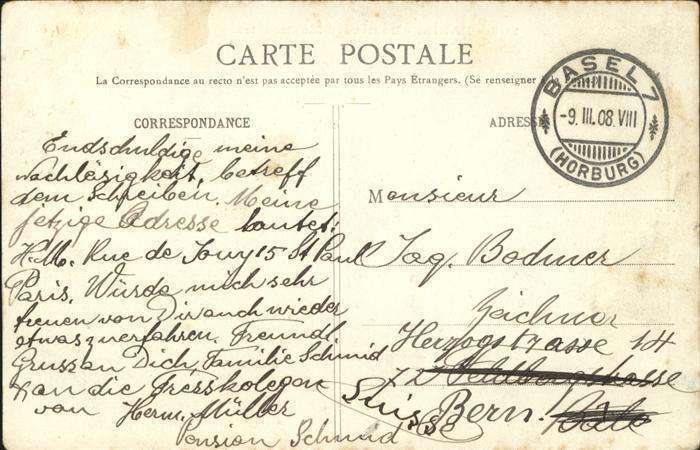 CARTE POSTALE
La Correspondance au recto n'est pas acceptée par tous les Pays Etrangers. (Se renseigner à la Poste)
CORRESPONDANCE
Endschuldige meine
Nachläsigkeit, betreff
dem Schreiben. Meine
jetzige Adresse lautet:
H. M. Rue de Jouy 15 St Paul
Paris. Würde mich sehr
freuen von Dir auch wieder
etwas zu erfahren. Freundl.
Gruss an Dich, Familie Schmid
an die Fresskolegen
von Herm. Müller
Pension Schmid
ADRESSE
BASEL 7
-9. III. 08. VIII
(HORBURG)
Monsieur
Jaq. Bodmer
Zeichner
Herzogstrasse 14
72 Feldbergstrasse
Suisse Bern! Bâle